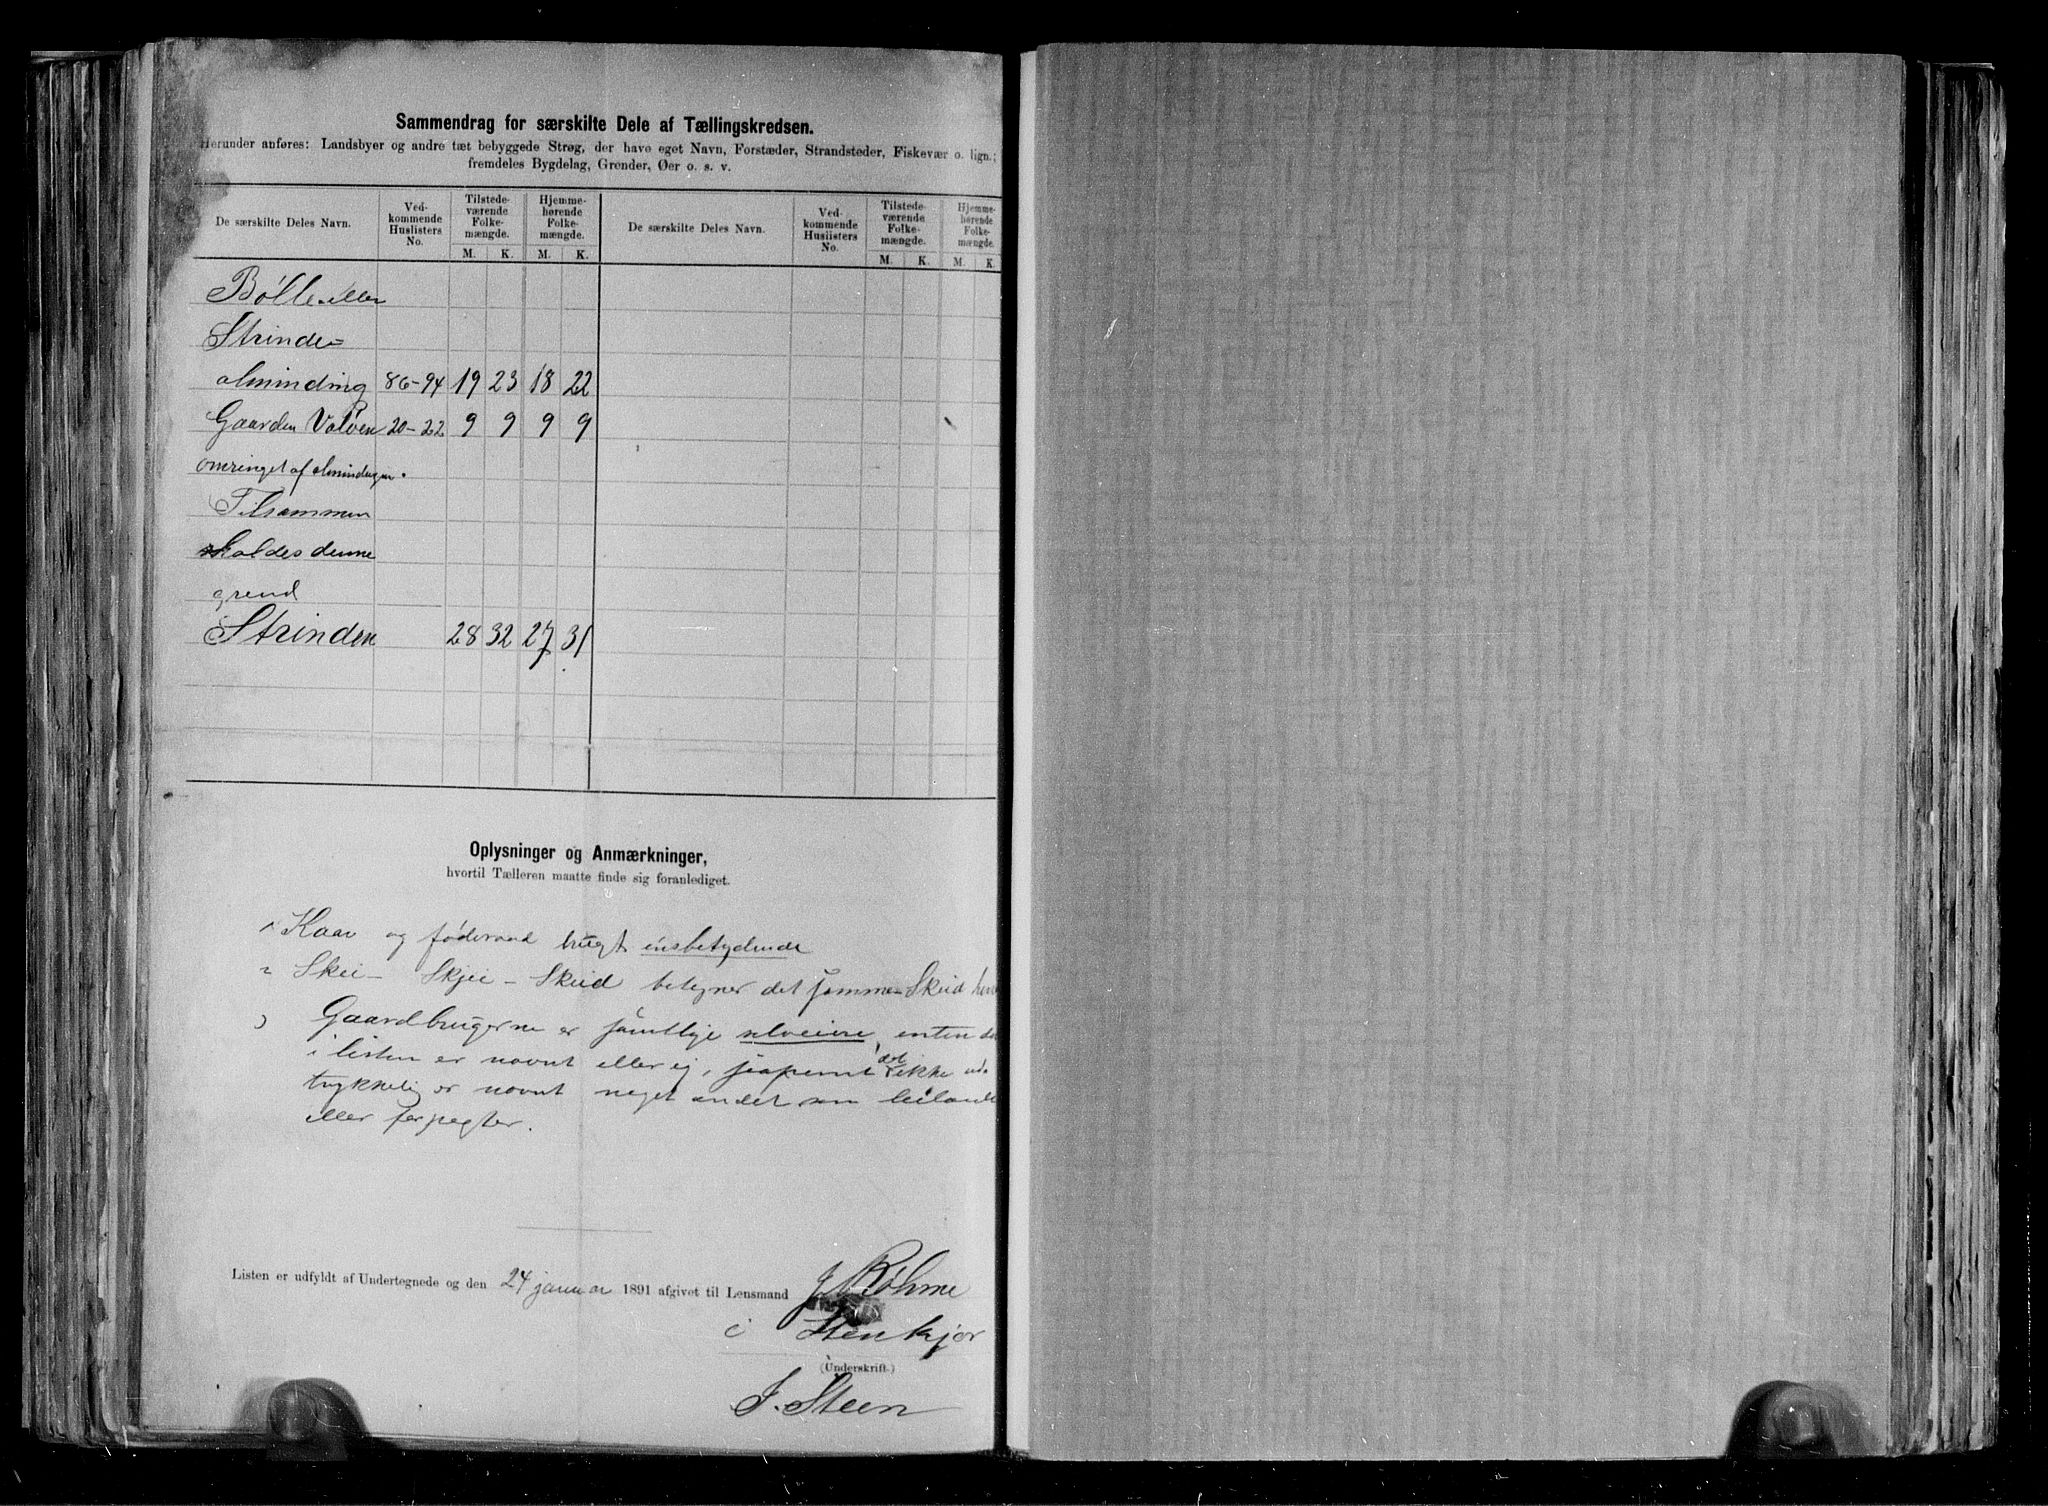 Sammendrag for særskilte Dele af Tællingskredsen.
Herunder anføres: Landsbyer og andre tæt bebyggede Strøg, der have eget Navn, Forstæder, Strandsteder, Fiskevær o. lign.;
fremdeles Bygdelag, Grender, Øer o. s. v.
De særskilte Deles Navn. Ved-kommende Huslisters No. Tilstede-værende Folke-mængde. Hjemme-hørende Folke-mængde. De særskilte Deles Navn. Ved-kommende Huslisters No. Tilstede-værende Folke-mængde. Hjemme-hørende Folke-mængde.
M. K. M. K. M. K. M. K.
Bølle eller
Strinde-
alminding 86-94 19 23 18 22
Gaarden Valøen 20-22 9 9 9 9
omringet af almindingen.
Tilsammen
kaldes denne
grend
Strinden 28 32 27 31
Oplysninger og Anmærkninger,
hvortil Tælleren maatte finde sig foranlediget.
1 Kaar og føderaad brugt ensbetydende
2 Skei - Skjei - Skeid betegner det samme Skeid
) Gaardbrugerne er samtlige selveiere, enten
i listen er navnt eller ej, det ikke ud-
trykkelig er navnt noget andet som
eller forpagter.
Listen er udfyldt af Undertegnede og den 24 januar 1891 afgivet til Lensmand J Bøhme
i Stenkjær
(Underskrift.)
J. Steen